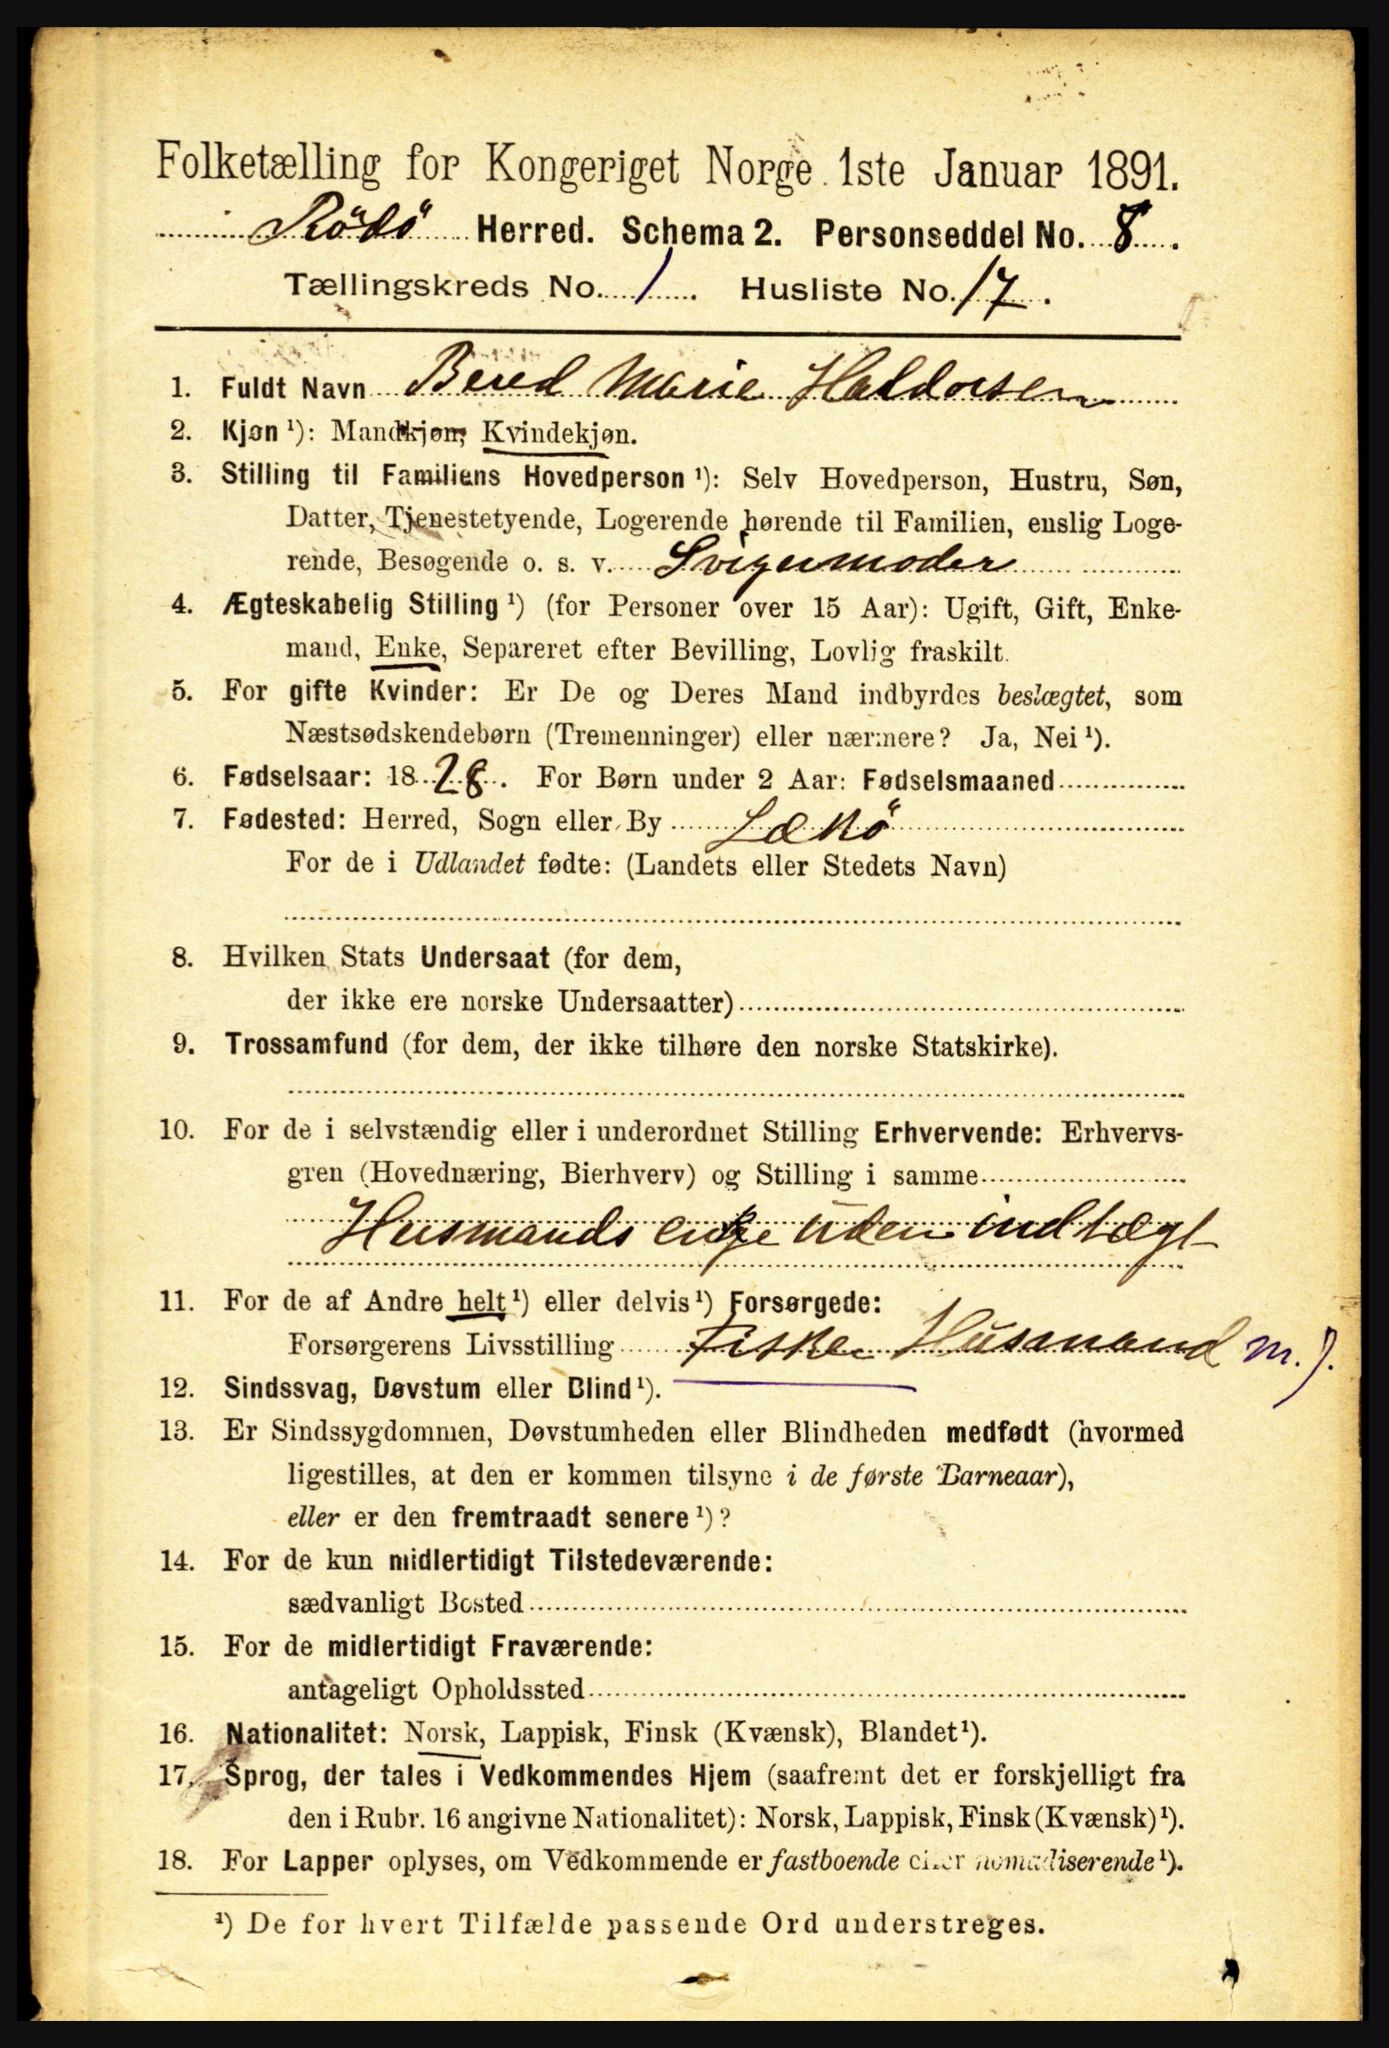 Folketælling for Kongeriget Norge 1ste Januar 1891.
Rödö Herred. Schema 2. Personseddel No. 8.
Tællingskreds No. 1. Husliste No. 17.
1. Fuldt Navn Bered Marie Haldorsen
2. Kjøn ¹): Mandkjøn, Kvindekjøn.
3. Stilling til Familiens Hovedperson ¹): Selv Hovedperson, Hustru, Søn,
Datter, Tjenestetyende, Logerende hørende til Familien, enslig Loge-
rende, Besøgende o. s. v. Svigermoder
4. Ægteskabelig Stilling ¹) (for Personer over 15 Aar): Ugift, Gift, Enke-
mand, Enke, Separeret efter Bevilling, Lovlig fraskilt.
5. For gifte Kvinder: Er De og Deres Mand indbyrdes beslægtet, som
Næstsødskendebørn (Tremenninger) eller nærmere? Ja, Nei ¹).
6. Fødselsaar: 1828. For Børn under 2 Aar: Fødselsmaaned
7. Fødested: Herred, Sogn eller By Lækö
For de i Udlandet fødte: (Landets eller Stedets Navn)
8. Hvilken Stats Undersaat (for dem,
der ikke ere norske Undersaatter)
9. Trossamfund (for dem, der ikke tilhøre den norske Statskirke).
10. For de i selvstændig eller i underordnet Stilling Erhvervende: Erhvervs-
gren (Hovednæring, Bierhverv) og Stilling i samme
Husmands enke uden indtægt
11. For de af Andre helt ¹) eller delvis ¹) Forsørgede:
Forsørgerens Livsstilling Fisker Husmand m. J.
12. Sindssvag, Døvstum eller Blind ¹).
13. Er Sindssygdommen, Døvstumheden eller Blindheden medfødt (hvormed
ligestilles, at den er kommen tilsyne i de første Barneaar),
eller er den fremtraadt senere ¹)?
14. For de kun midlertidigt Tilstedeværende:
sædvanligt Bosted
15. For de midlertidigt Fraværende:
antageligt Opholdssted
16. Nationalitet: Norsk, Lappisk, Finsk (Kvænsk), Blandet ¹).
17. Sprog, der tales i Vedkommendes Hjem (saafremt det er forskjelligt fra
den i Rubr. 16 angivne Nationalitet): Norsk, Lappisk, Finsk (Kvænsk) ¹).
18. For Lapper oplyses, om Vedkommende er fastboende eller nomadiserende ¹).
¹) De for hvert Tilfælde passende Ord understreges.